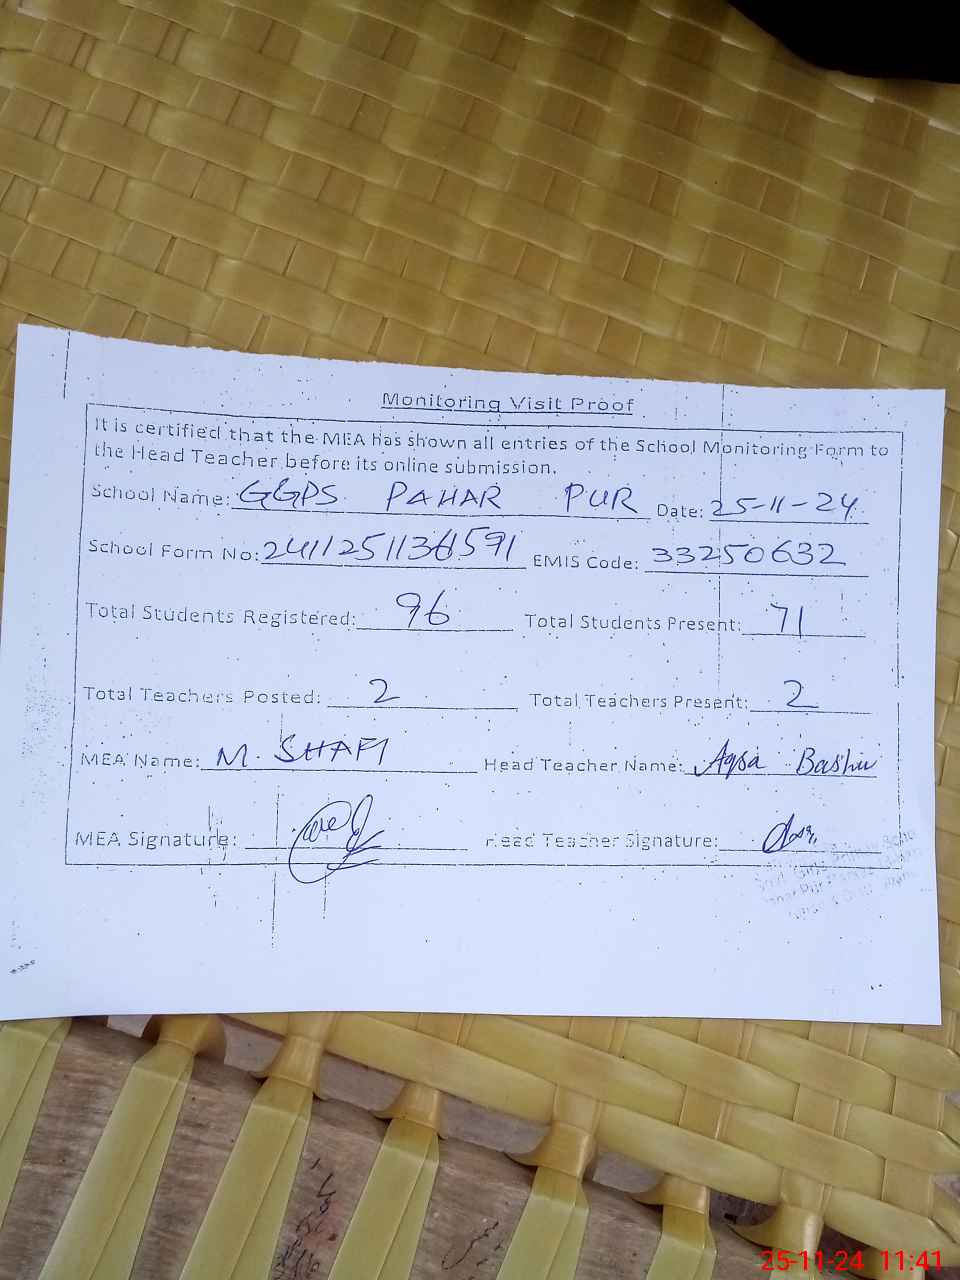 Monitoring Visit Proof
It is certified that the MEA has shown all entries of the School Monitoring Form to
the Head Teacher before its online submission.
School Name: GGPS PAHAR PUR Date: 25-11-24
School Form No: EMIS Code: 33250632
Total Students Registered: 96 Total Students Present: 71
Total Teachers Posted: 2 Total Teachers Present: 2
MEA Name: M. SHAFI Head Teacher Name: Aqsa Bashir
MEA Signature: Head Teacher Signature:
25-11-24 11:41